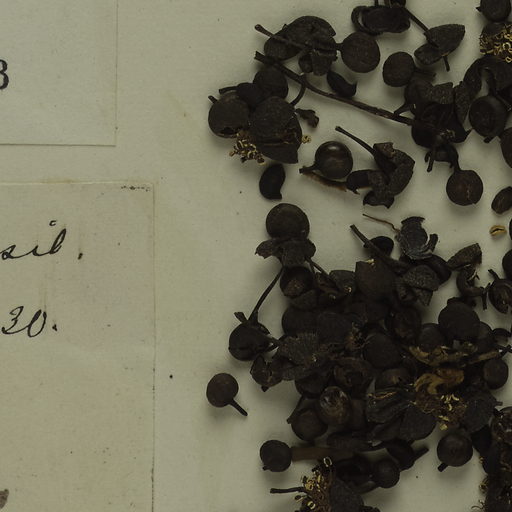 3
sil.
30.